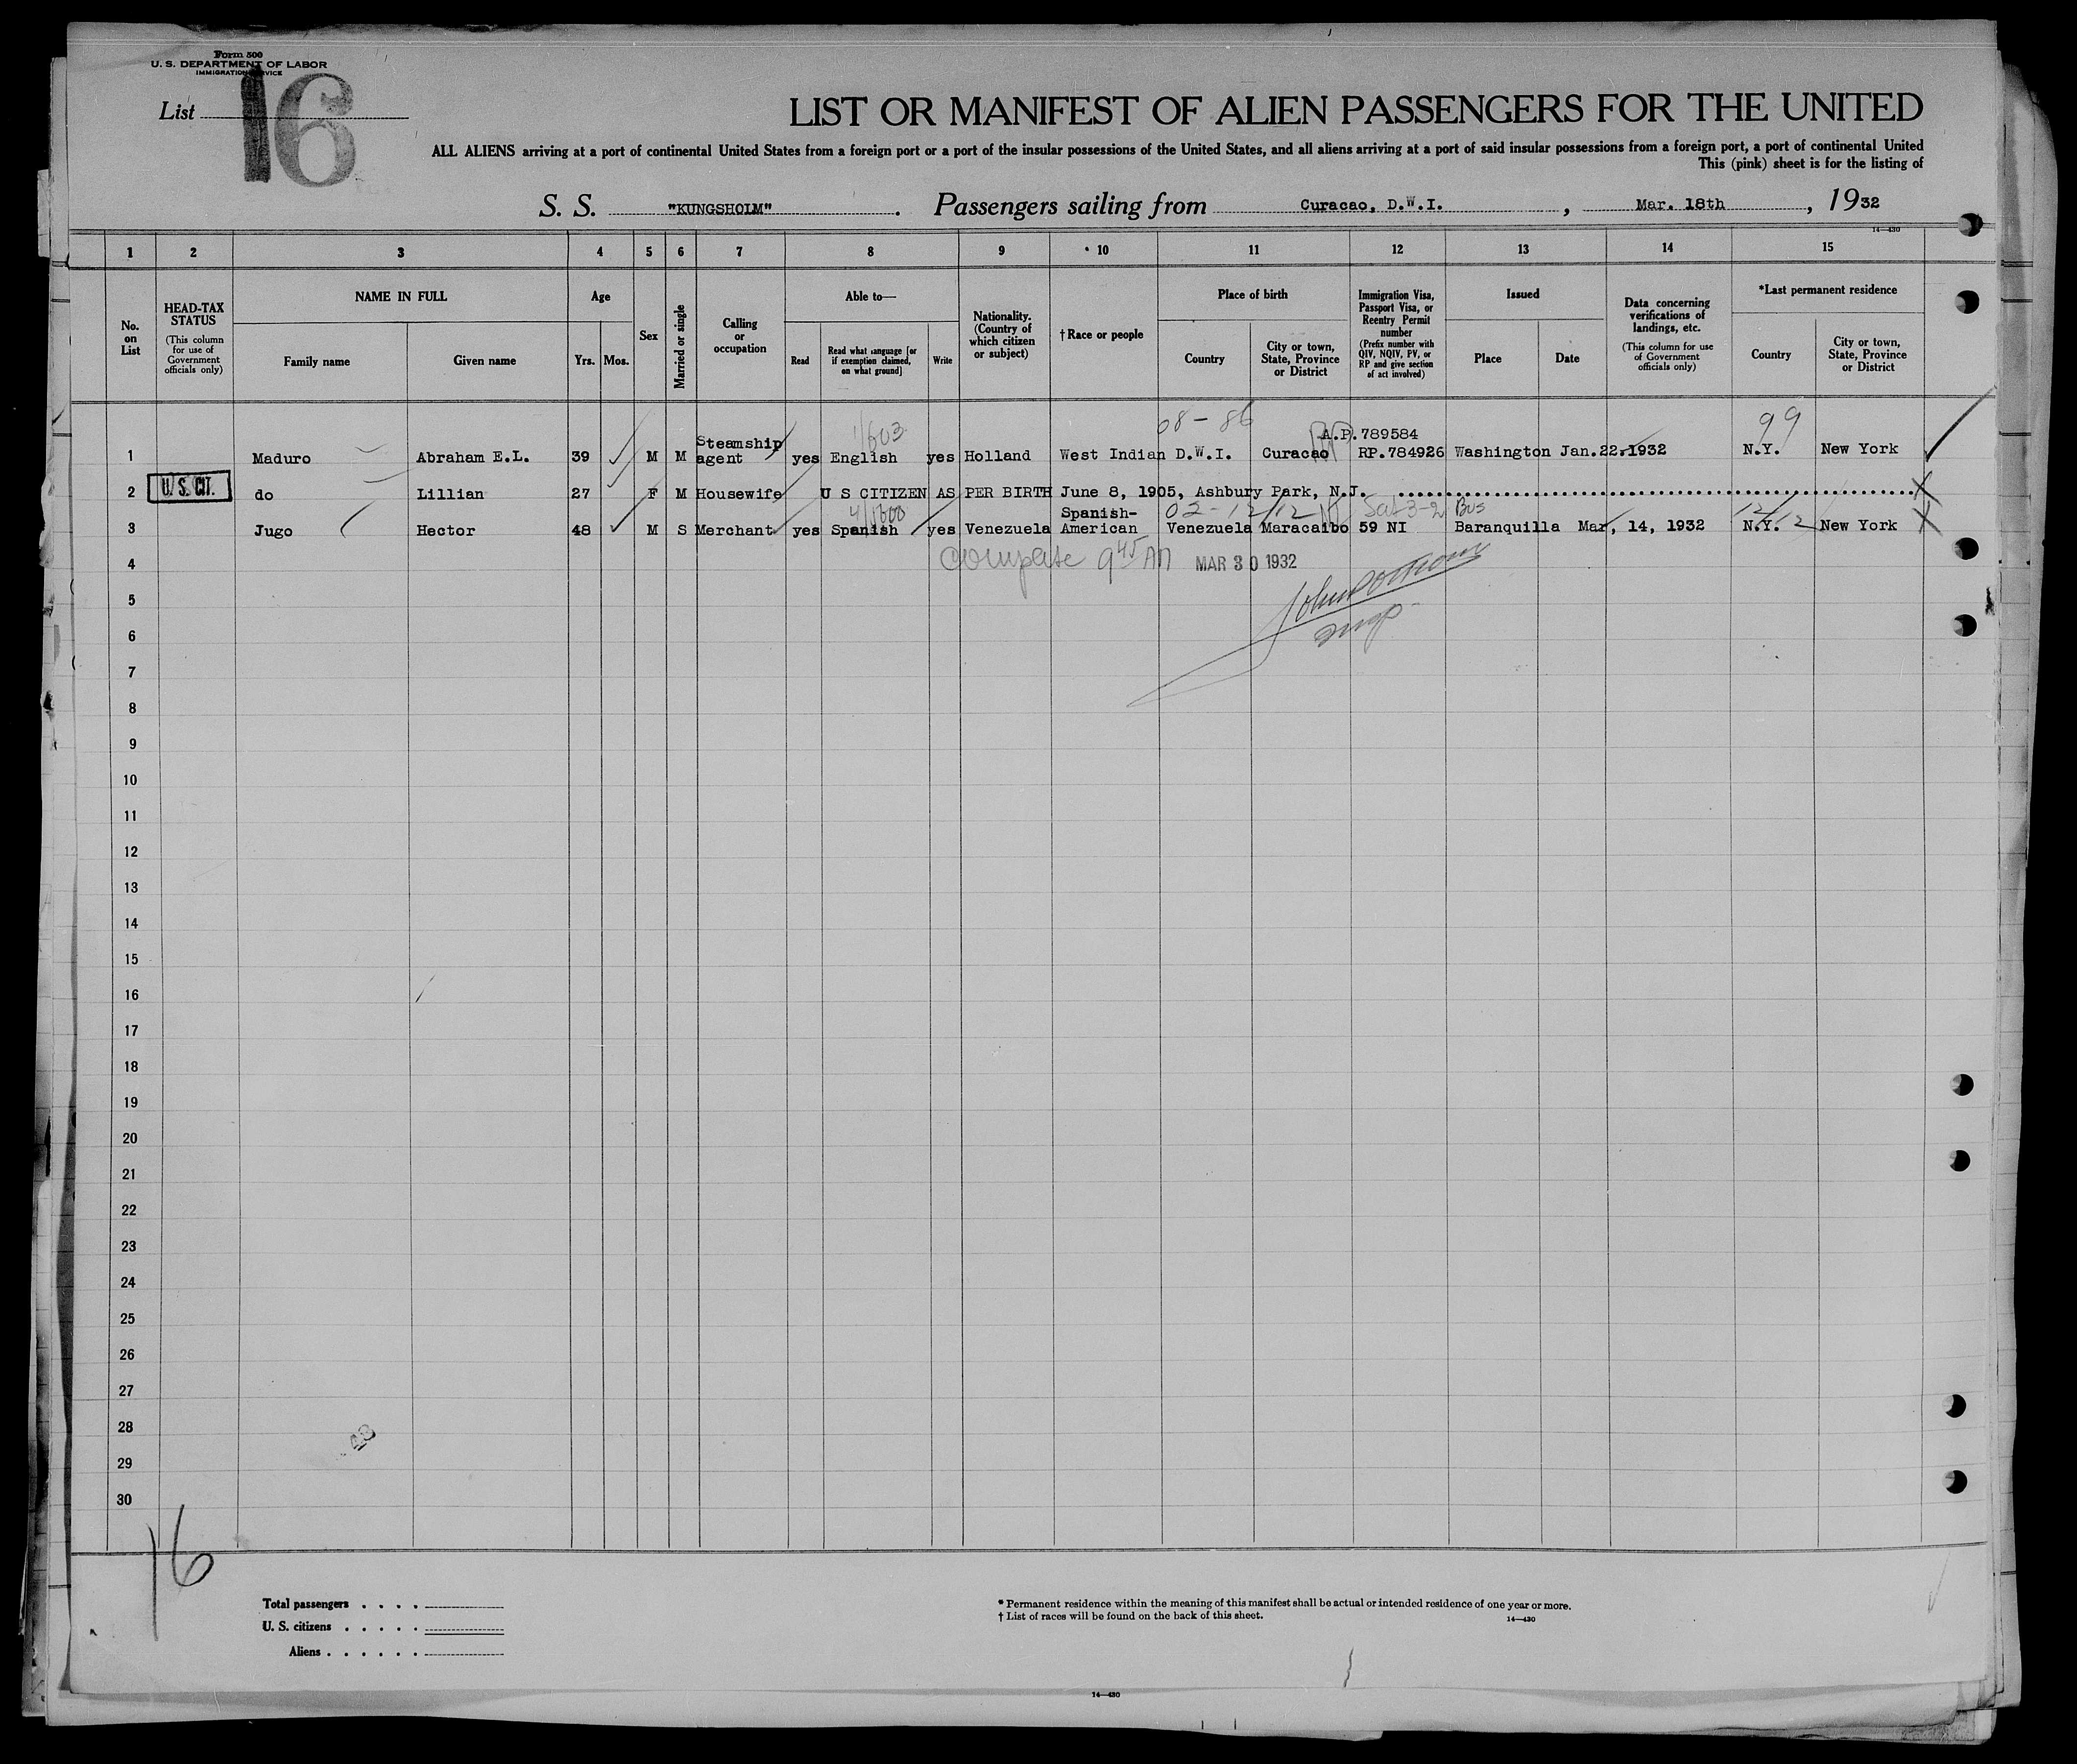 Form 500
U. S. DEPARTMENT OF LABOR
IMMIGRATION SERVICE
List 16
LIST OR MANIFEST OF ALIEN PASSENGERS FOR THE UNITED
ALL ALIENS arriving at a port of continental United States from a foreign port or a port of the insular possessions of the United States, and all aliens arriving at a port of said insular possessions from a foreign port, a port of continental United
This (pink) sheet is for the listing of
S. S. "KUNGSHOLM". Passengers sailing from Curacao, D.W.I., Mar. 18th, 1932
14—430
1 2 3 4 5 6 7 8 9 10 11 12 13 14 15
No. on List
HEAD-TAX STATUS
(This column for use of Government officials only)
NAME IN FULL
Family name
Given name
Age
Yrs.
Mos.
Sex
Married or single
Calling or occupation
Able to—
Read
Read what language [or if exemption claimed, on what ground]
Write
Nationality. (Country of which citizen or subject)
† Race or people
Place of birth
Country
City or town, State, Province or District
Immigration Visa, Passport Visa, or Reentry Permit number
(Prefix number with QIV, NQIV, PV, or RP and give section of act involved)
Issued
Place
Date
Data concerning verifications of landings, etc.
(This column for use of Government officials only)
*Last permanent residence
Country
City or town, State, Province or District
08 - 86 99
1/603 A.P. 789584
1 Maduro Abraham E.L. 39 M M Steamship agent yes English yes Holland West Indian D.W.I. Curacao RP.784926 Washington Jan.22.1932 N.Y. New York
2 U.S. CIT. do Lillian 27 F M Housewife U S CITIZEN AS PER BIRTH June 8, 1905, Ashbury Park, N.J.
4/1600 02-12/12 NI Sat 3-2 Bus 12/12
3 Jugo Hector 48 M S Merchant yes Spanish yes Venezuela Spanish-American Venezuela Maracaibo 59 NI Baranquilla Mar, 14, 1932 N.Y. New York
4 Complete 9 45 AM MAR 30 1932
5
6
7
8
9
10
11
12
13
14
15
16
17
18
19
20
21
22
23
24
25
26
27
28
29
30
16
Total passengers
U. S. citizens
Aliens
* Permanent residence within the meaning of this manifest shall be actual or intended residence of one year or more.
† List of races will be found on the back of this sheet.
14—430
14—430